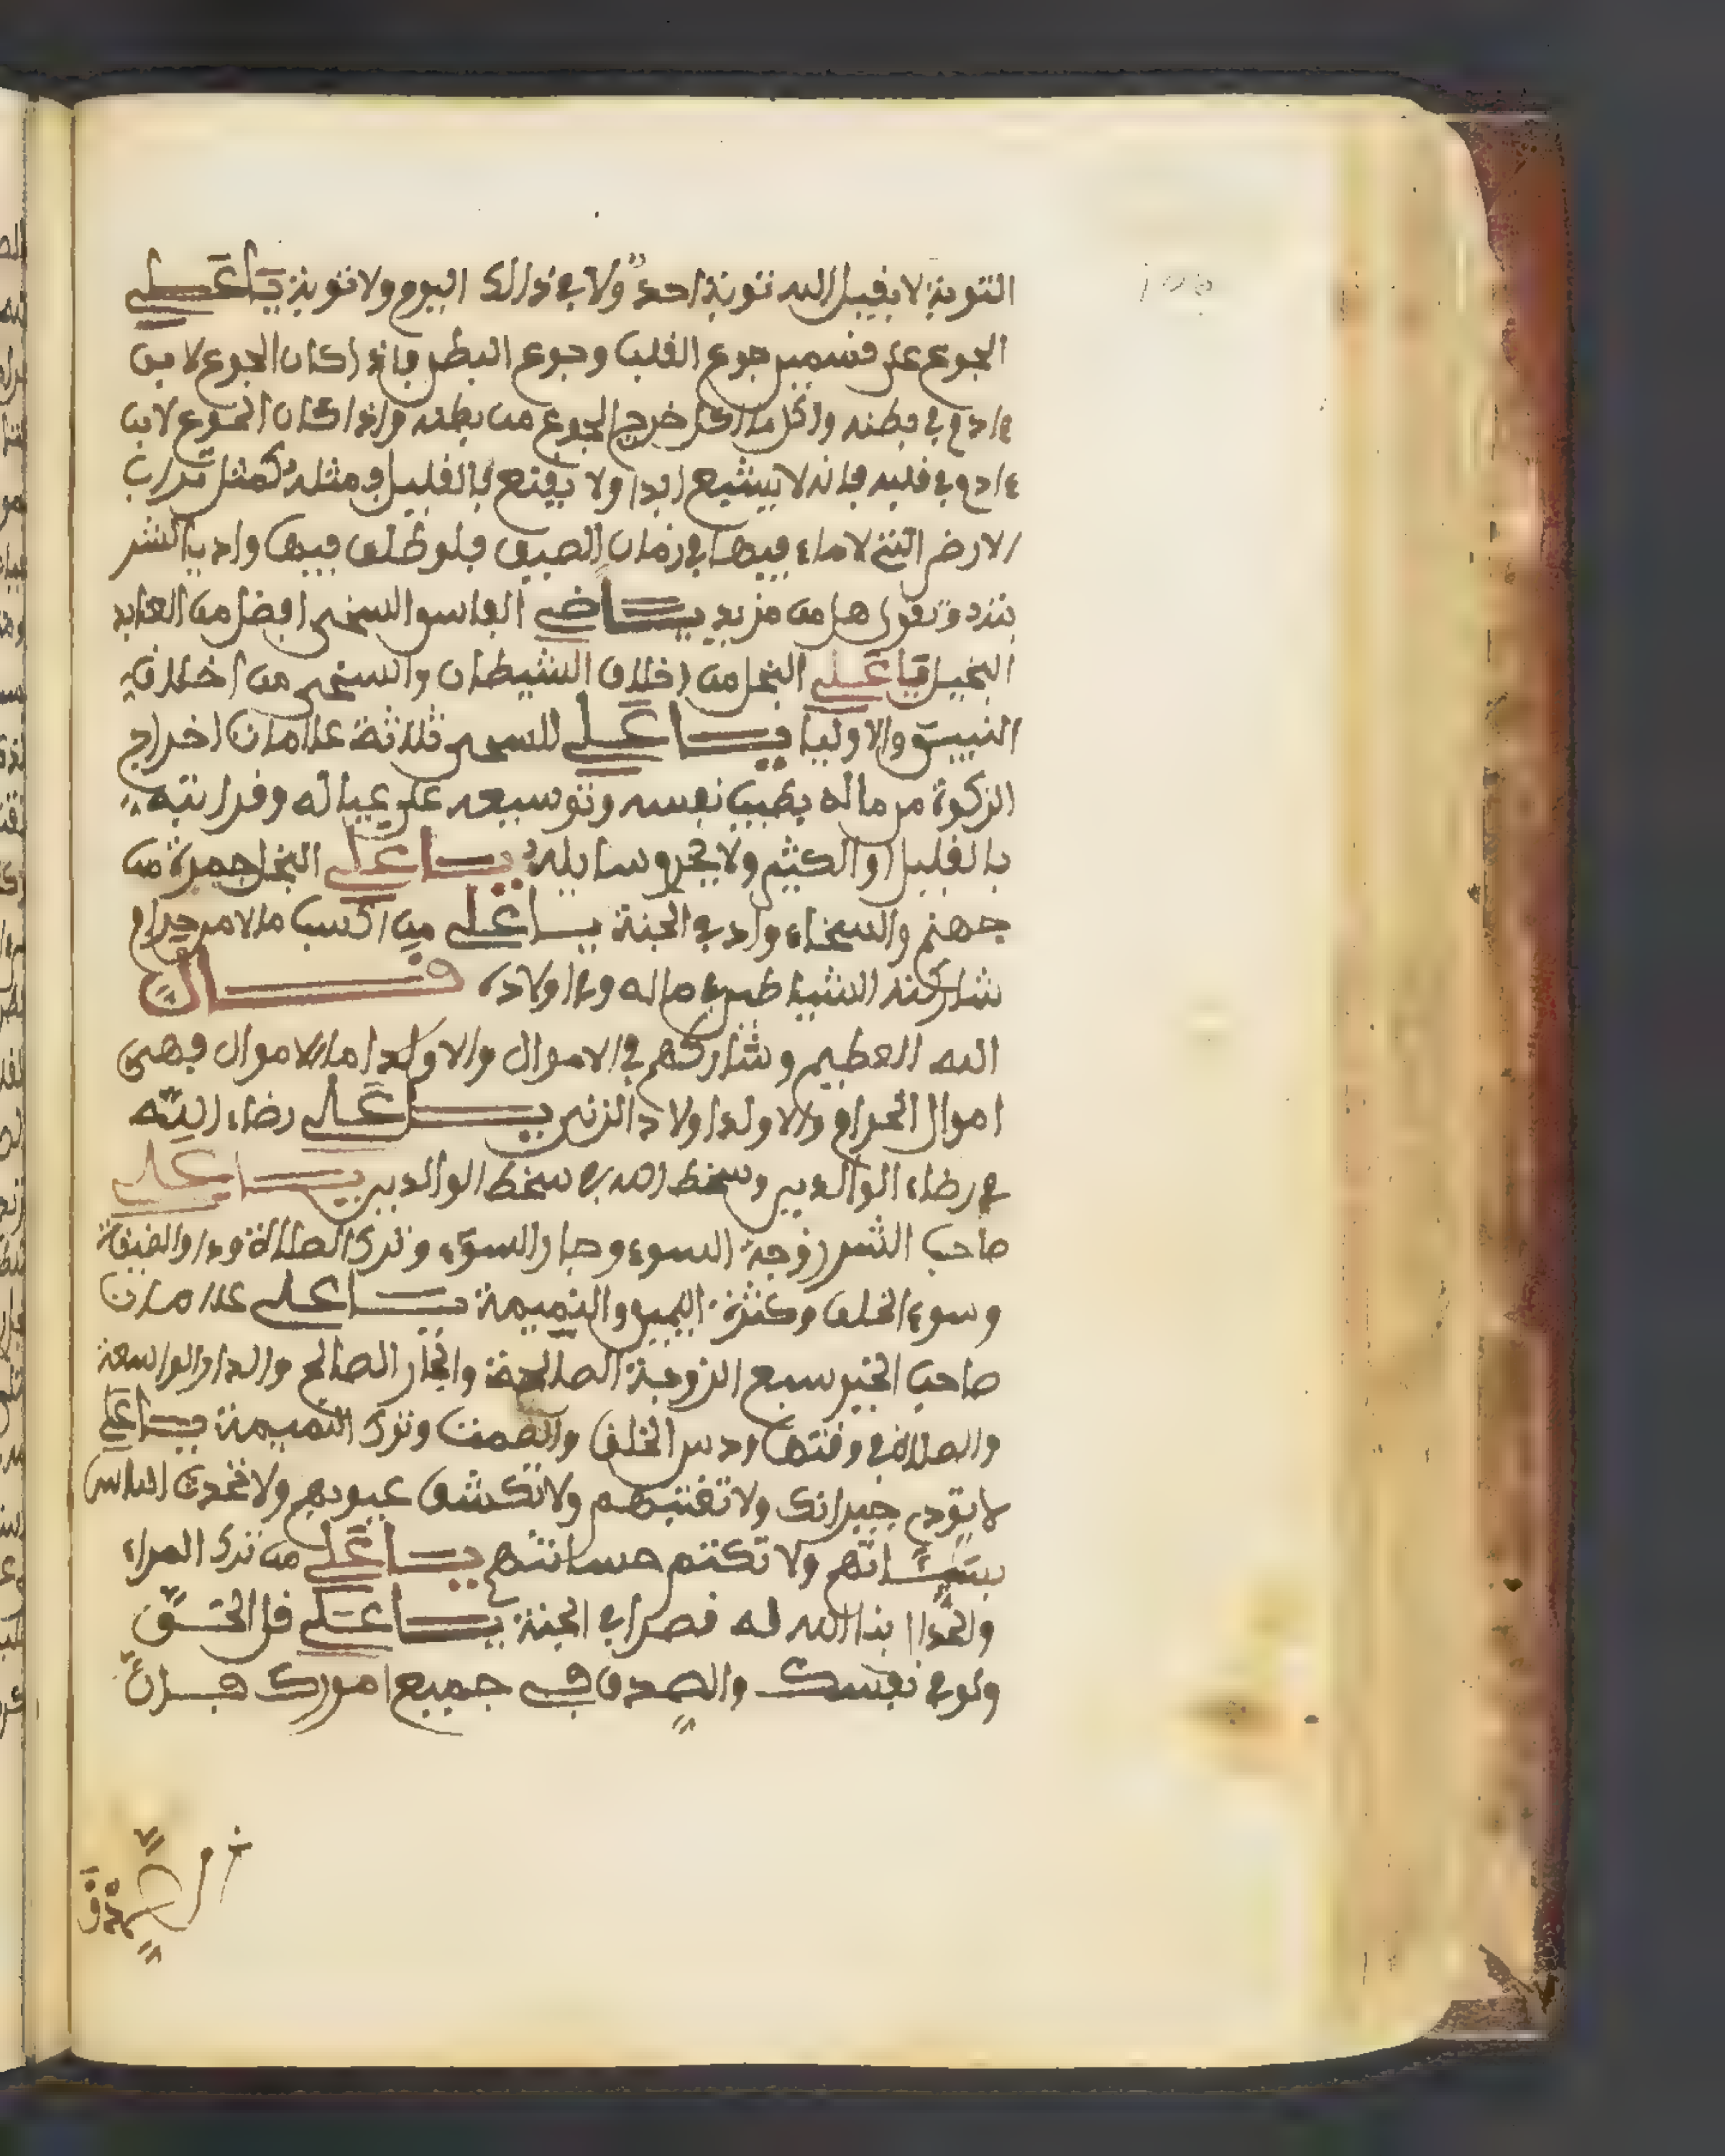 التوبة لا يقبل الله توبة احد ولا في ذالك اليوم ولا توبة يا علي
الجوع على قسمين جوع القلب وجوع البطن فاذا كان الجوع لابن
ءادم في بطنه واكل ما اكل خرج الجوع من بطنه واذا كان الجوع لابن
ءادم في قلبه فانه لا يشبع ابدا ولا يقنع بالقليل ومثله كمثل تراب
الارض التي لا ماء فيها في زمان الصيف فلو طلق فيها واديا
تقول هل من مزيد يا علي الفاسق السخي افضل من العابد
البخيل يا علي البخل من اخلاق الشيطان والسخي من اخلاق
النبيين والاوليا يا علي للسخي ثلاثة علامات اخراج
الزكوة من ماله بطيب نفسه وتوسيعه على عياله وقرابته
بالقليل او الكثير ولا سايله يا علي البخل جمرة من
جهنم والسخاء واد في الجنة يا علي من اكسب مالا من حرام
شاركته الشياطين في ماله وفي اولاده قال
الله العظيم وشاركهم في الاموال والاولد اما الاموال فهي
اموال الحرام والاولد اولاد الزنى يا علي رضاء الله
في رضاء الوالدين وسخط الله في سخط الوالدين يا علي
صاحب الشر زوجة السوء وجار السوء وترك الصلاة ودار الضيقة
وسوء الخلق وكثرة اليمين والنميمة يا علي علامات
صاحب الخير سبع الزوجة الصالحة والجار الصالح والدار الواسعة
والصلاة في وقتها وحسن الخلق والصمت وترك النميمة يا علي
لا تؤدي جيرانك ولا تغتبهم ولا تكشف عيوبهم ولا تحدث الناس
بسيئاتهم ولا تكتم حسانتهم يا علي من ترك المراء
بنا الله له قصرا في الجنة يا علي قل الحق
ولو في نفسك والصدق في جميع امورك فان
الصدق